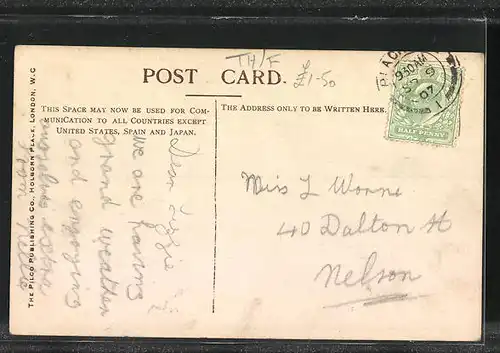 TH/F
£1-50
POST CARD.
THIS SPACE MAY NOW BE USED FOR COM-
MUNICATION TO ALL COUNTRIES EXCEPT
UNITED STATES, SPAIN AND JAPAN.
THE ADDRESS ONLY TO BE WRITTEN HERE.
9 30 AM
07
HALFPENNY
Dear Lizzie
we are having
grand weather
and enjoying
ourselves
from Nellie
Miss L
40 Dalton St
Nelson
THE PILCO PUBLISHING CO., HOLBORN PLACE, LONDON, W.C